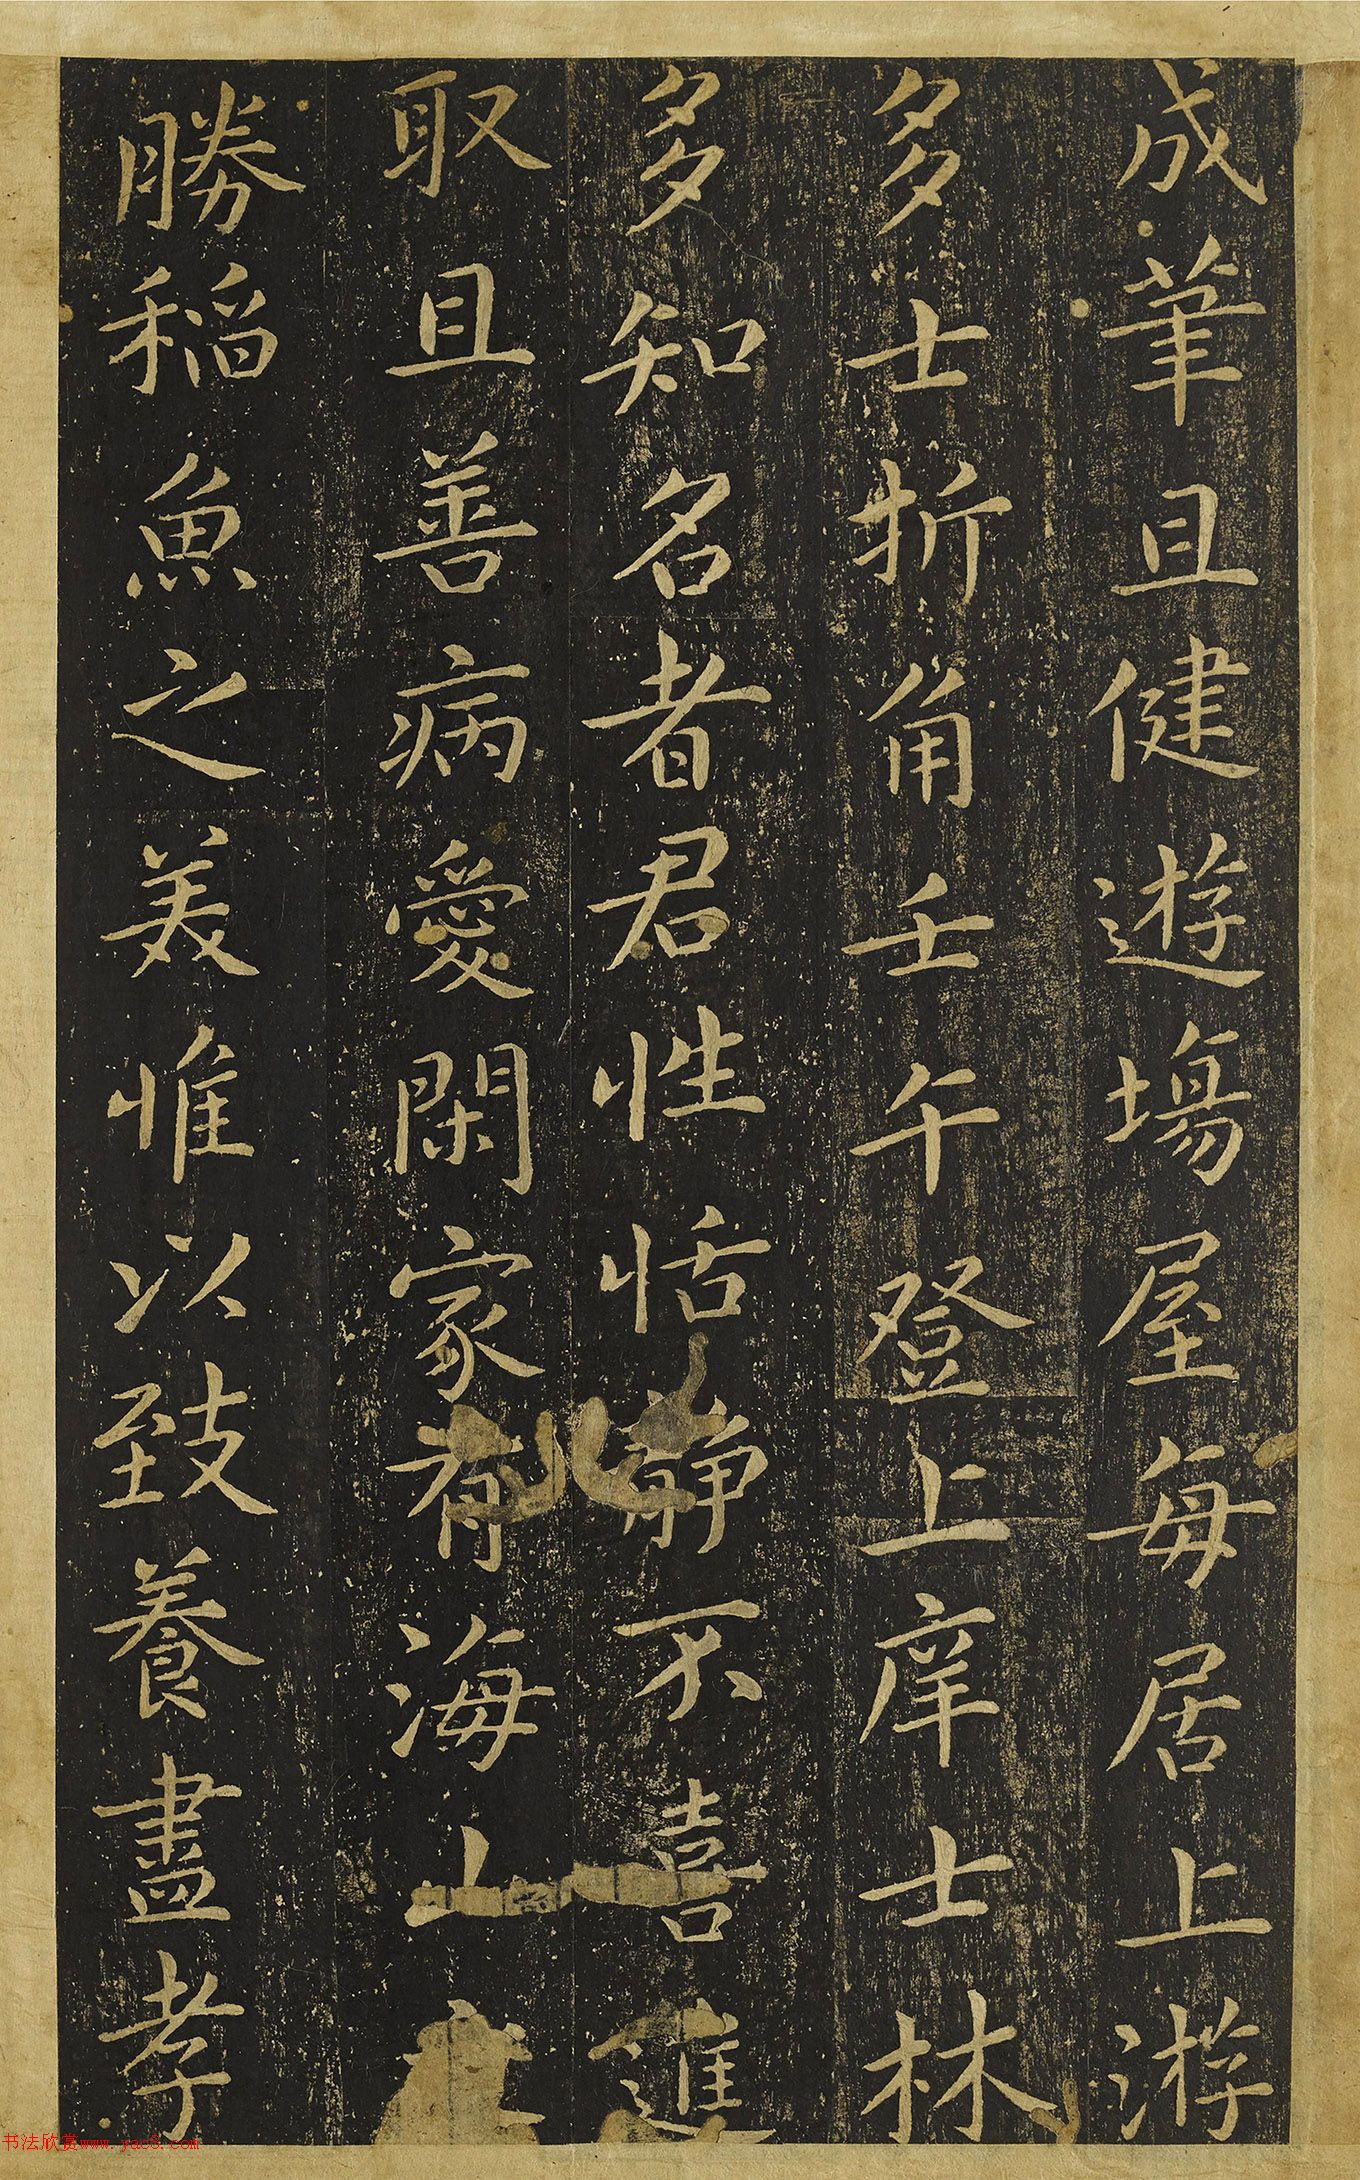 成筆且健遊場屋每居上游
多士折角壬午登上庠士林
多知名者君性恬靜不喜進
取且善病愛閑家有海山
勝稻魚之美惟以致養盡孝
书法欣赏www.yac8.com